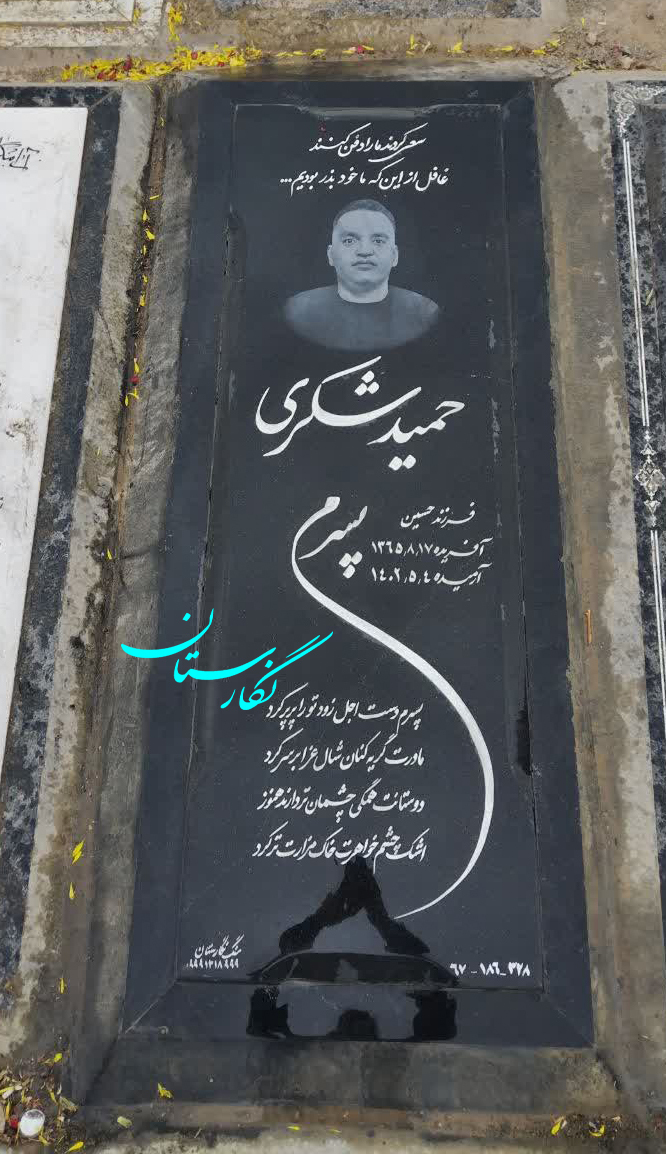 سعی کردند ما را دفن کنند
غافل از این که ما خود بذر بودیم...
حمید شکری
فرزند حسین
پسرم
آفریده ۱۳۶۵٫۸٫۱۷
آرمیده ۱۴۰۲٫۵٫۴
نگارستان
پسرم دست اجل زود تو را پرپر کرد
مادرت گریه کنان شال عزا بر سر کرد
دوستانت همگی چشمان تر دارند هنوز
اشک چشم خواهرت خاک مزارت تر کرد
سنگ نگارستان
۰۹۹۱۲۱۸۹۹۹
۶۷ - ۱۸۶ - ۳۲۸